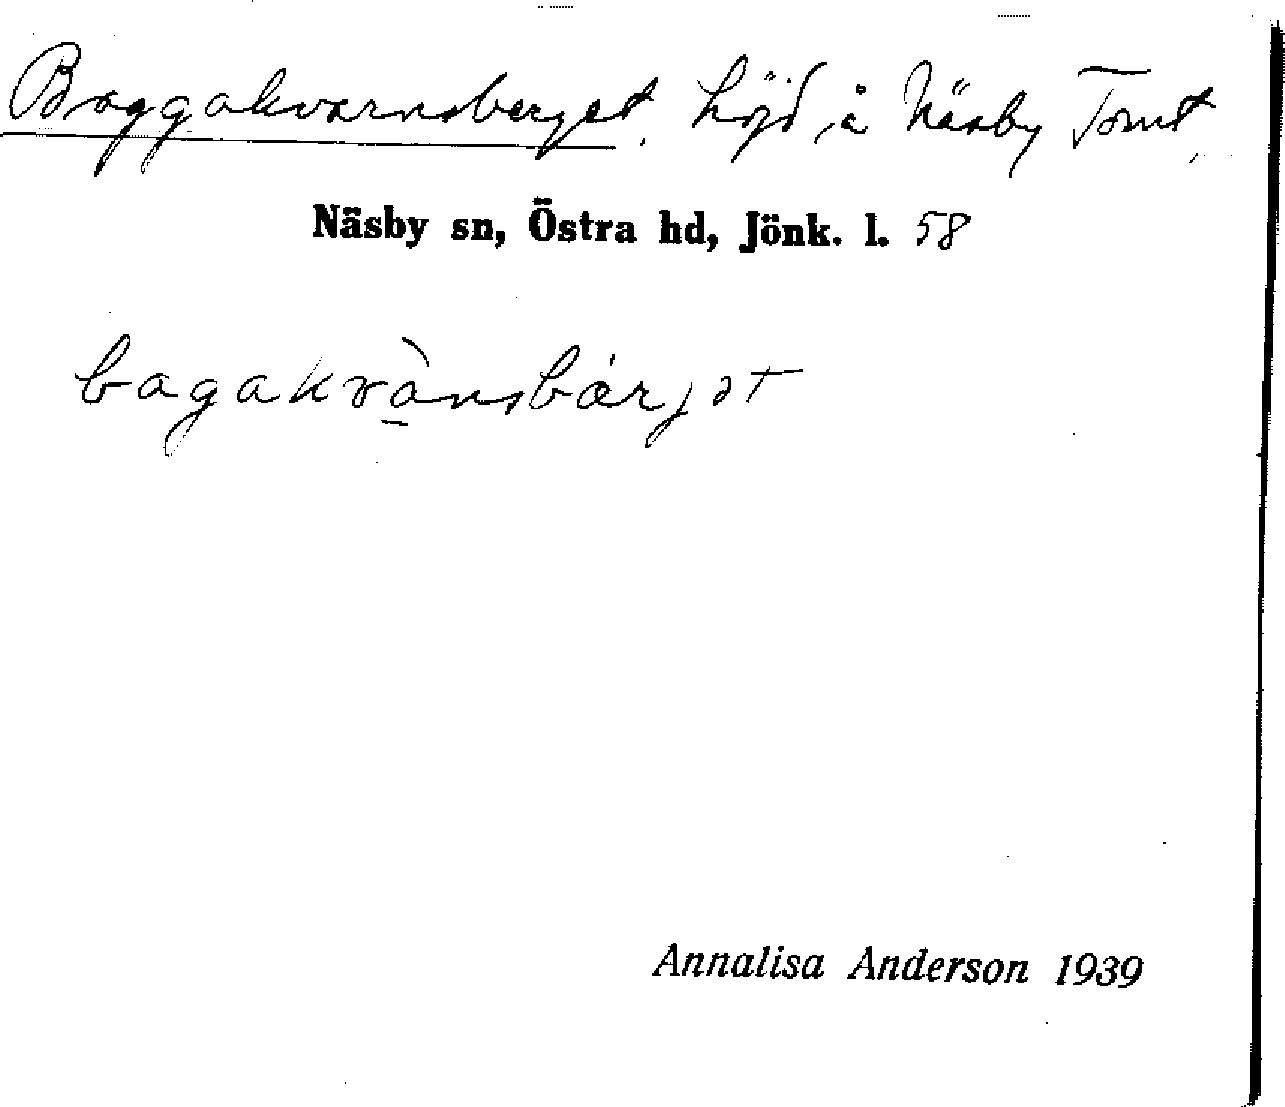 Baggakvarnsberget. Höjd å Näsby Tomt.
Näsby sn, Östra hd, Jönk. l. 58
bagakvà̱nsbárjət
Annalisa Anderson 1939